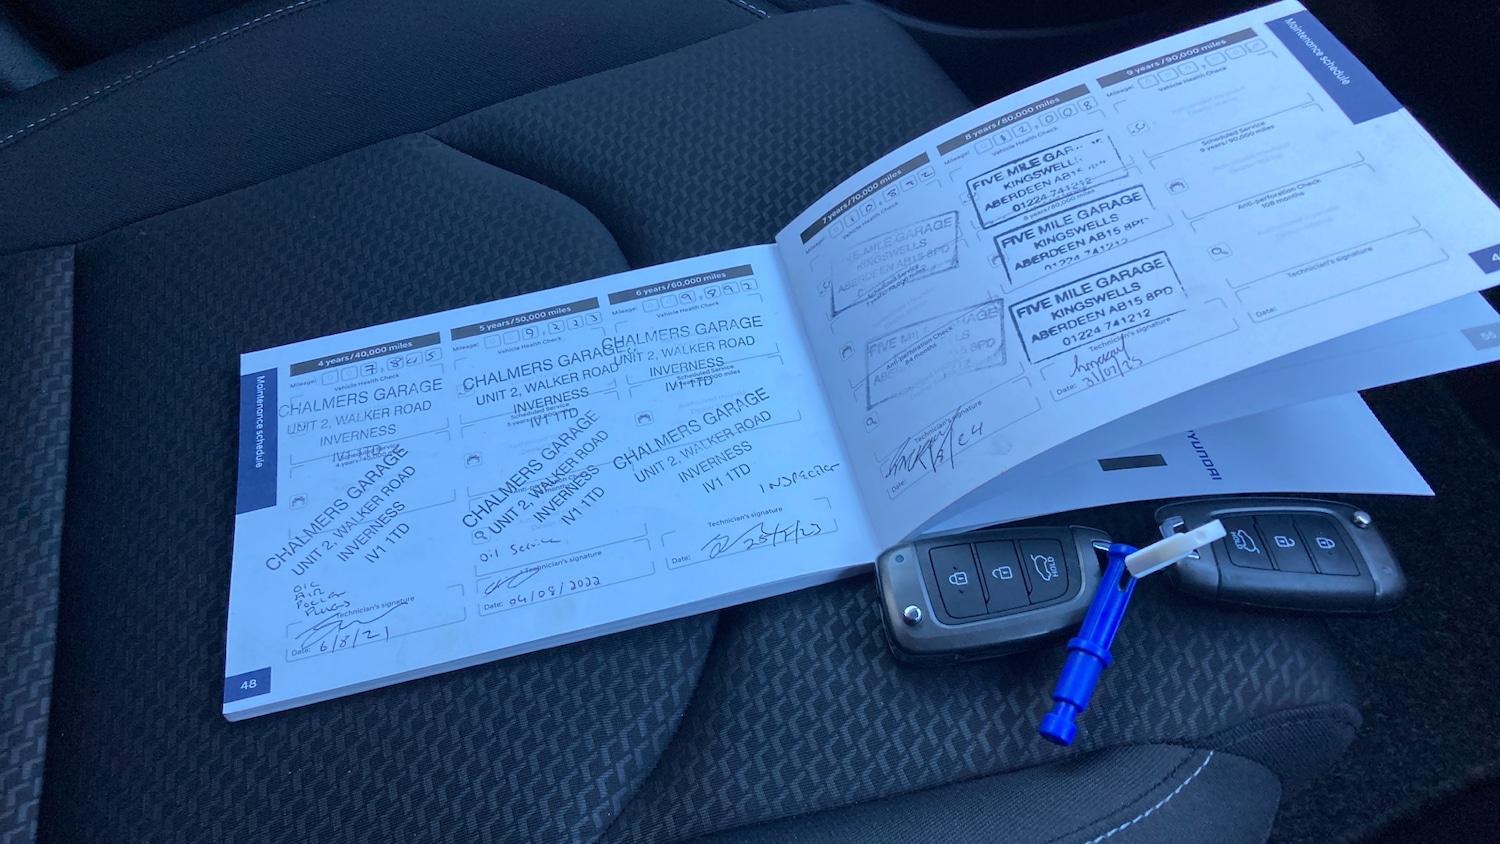 Maintenance schedule
4 years/40,000 miles
Mileage: 7,845
Vehicle Health Check
CHALMERS GARAGE
UNIT 2, WALKER ROAD
INVERNESS
IV1 1TD
CHALMERS GARAGE
UNIT 2, WALKER ROAD
INVERNESS
IV1 1TD
OIL
AIR
POLLEN
PLUGS
Technician's signature
Date: 6/8/21
48
5 years/50,000 miles
Mileage: 9,223
Vehicle Health Check
CHALMERS GARAGE
UNIT 2, WALKER ROAD
INVERNESS
IV1 1TD
Scheduled Service
CHALMERS GARAGE
UNIT 2, WALKER ROAD
INVERNESS
IV1 1TD
Oil Service
Technician's signature
Date: 04/08/2022
6 years/60,000 miles
Mileage: 9,892
Vehicle Health Check
CHALMERS GARAGE
UNIT 2, WALKER ROAD
INVERNESS
IV1 1TD
Scheduled Service
CHALMERS GARAGE
UNIT 2, WALKER ROAD
INVERNESS
IV1 1TD
Technician's signature
Date:
7 years/70,000 miles
Mileage:
Vehicle Health Check
FIVE MILE GARAGE
KINGSWELLS
ABERDEEN AB15 8PD
Scheduled Service
Anti-perforation Check
84 months
Technician's signature
Date:
8 years/80,000 miles
Mileage:
Vehicle Health Check
FIVE MILE GAR
KINGSWELL
ABERDEEN AB15
01224 741212
8 years/80,000 miles
FIVE MILE GARAGE
KINGSWELLS
ABERDEEN AB15 8PD
01224 741212
FIVE MILE GARAGE
KINGSWELLS
ABERDEEN AB15 8PD
01224 741212
Technician's signature
Date: 31/07/25
9 years/90,000 miles
Mileage:
Vehicle Health Check
Scheduled Service
9 years/90,000 miles
Anti-perforation Check
108 months
Technician's signature
Date:
Maintenance schedule
4
55
HYUNDAI
HOLD
HOLD